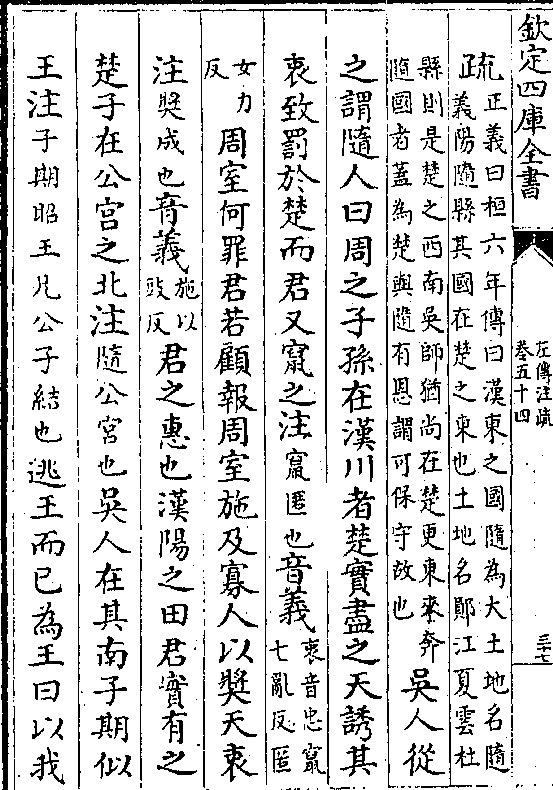 欽定四庫全書
左傳注疏
卷五十四
三十七
疏正義曰桓六年傳曰漢東之國隨為大土地名隨
義陽隨縣其國在楚之東也土地名鄖江夏雲杜
縣則是楚之西南吳師猶尚在楚更東來奔
隨國者蓋為楚與隨有恩謂可保守故也
吳人從
之謂隨人曰周之子孫在漢川者楚實盡之天誘其
衷致罰於楚而君又竄之注竄匿也音義衷音忠竄
七亂反匿
女力
反
周室何罪君若顧報周室施及寡人以獎天衷
注獎成也音義施以
豉反
君之惠也漢陽之田君實有之
楚子在公宮之北注隨公宮也吳人在其南子期似
王注子期昭王凡公子結也逃王而已為王曰以我